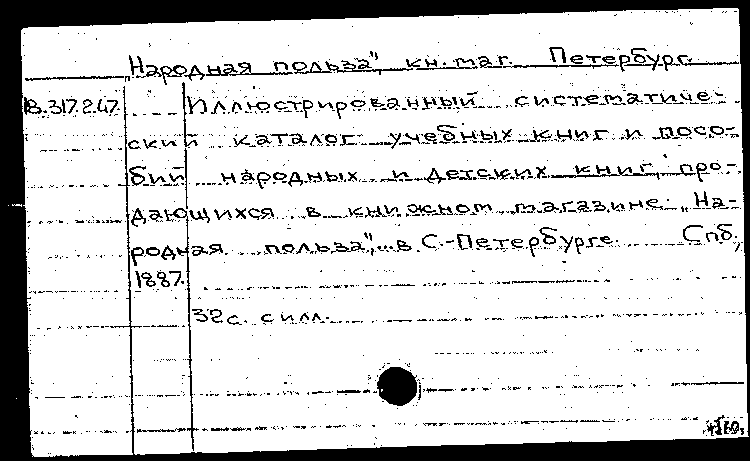 „Народная польза", кн. маг. Петербург.
18.317.2.47. Иллюстрированный систематиче-
ский каталог учебных книг и посо-
бий народных и детских книг, про-
дающихся в книжном магазине „На-
родная польза", в С.-Петербурге. Спб,
1887.
32 с. с илл.